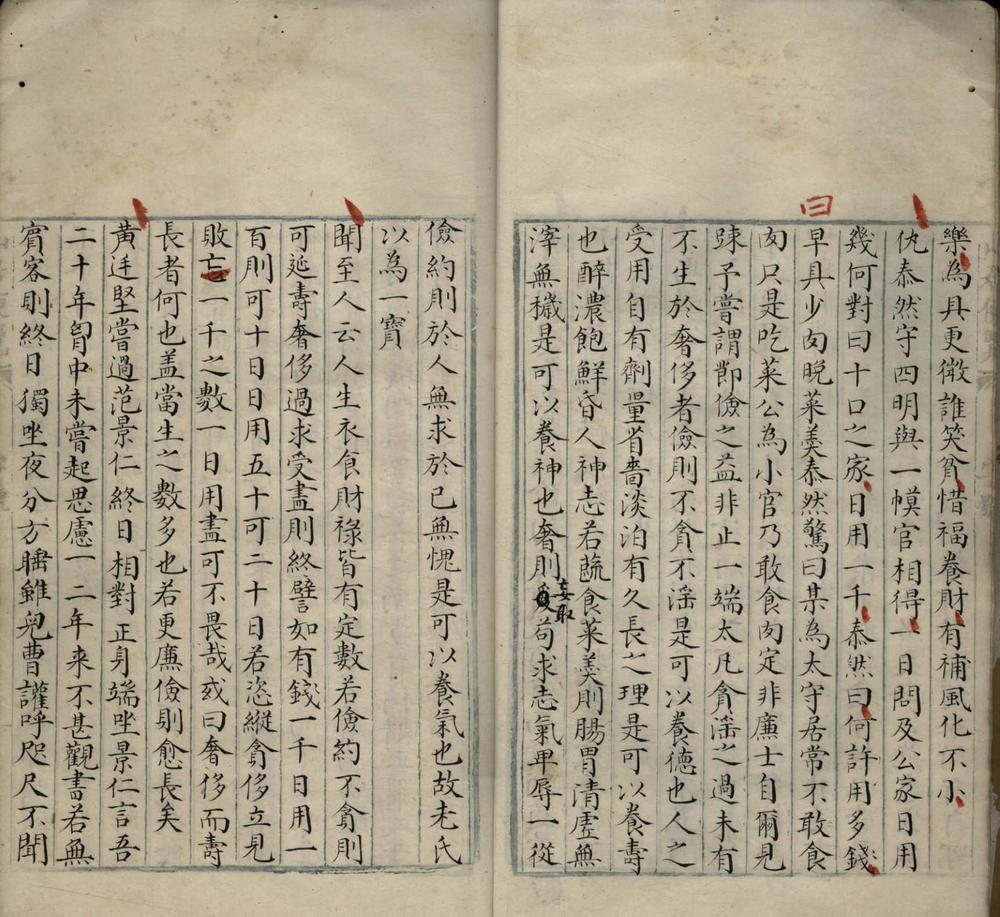 樂為具更徵誰笑貧惜福養財有補風化不小
仇泰然守四明與一幙官相得一日問及公家日用
幾何對曰十口之家日用一千泰然曰何許用多錢
曰
早具少肉晚菜羹泰然驚曰某為太守居常不敢食
肉只是吃菜公為小官乃敢食肉定非廉士自爾見
踈予嘗謂節儉之益非止一端太凡貪淫之過未有
不生於奢侈者儉則不貪不淫是可以養德也人之
受用自有劑量省嗇淡泊有久長之理是可以養壽
也醉濃飽鮮昏人神志若蔬食菜羹則腸胃清虛無
滓無穢是可以養神也奢則妄取苟求志氣卑辱一從
儉約則於人無求於己無愧是可以養氣也故老氏
以為一寶
聞至人云人生衣食財祿皆有定數若儉約不貪則
可延壽奢侈過求受盡則終譬如有錢一千日用一
百則可十日日用五十可二十日若恣縱貪侈立見
敗亡一千之數一日用盡可不畏哉或曰奢侈而壽
長者何也盖當生之數多也若更廉儉則愈長矣
黃廷堅嘗過范景仁終日相對正身端坐景仁言吾
二十年胷中未嘗起思慮一二年来不甚觀書若無
賓客則終日獨坐夜分方睡雖兒曹讙呼咫尺不聞